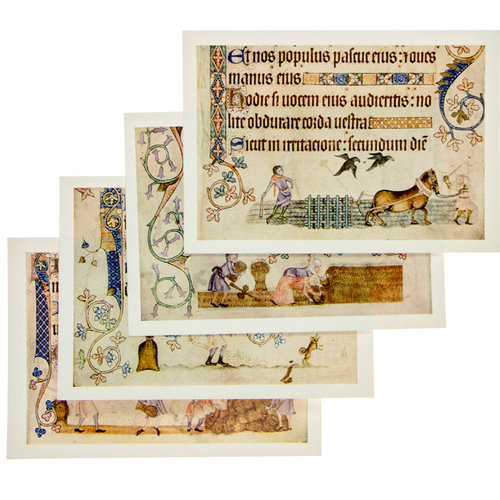 Et nos populus pascue eius : ⁊ oues
manus eius
Hodie si uocem eius audieritis : no
lite obdurare corda uestra
Sicut in irritacione : secundum diē